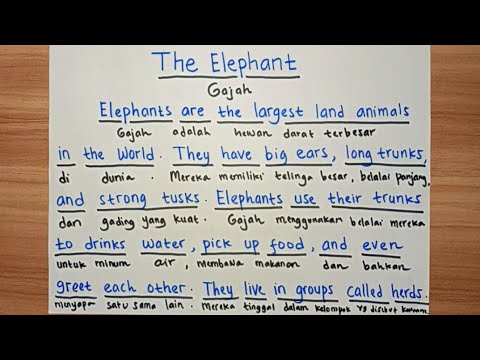 The Elephant
Gajah
Elephants are the largest land animals
Gajah adalah hewan darat terbesar
in the world. They have big ears, long trunks,
di dunia. Mereka memiliki telinga besar, belalai panjang,
and strong tusks. Elephants use their trunks
dan gading yang kuat. Gajah menggunakan belalai mereka
to drinks water, pick up food, and even
untuk minum air, membawa makanan dan bahkan
greet each other. They live in groups called herds.
menyapa satu sama lain. Mereka tinggal dalam kelompok yg disebut